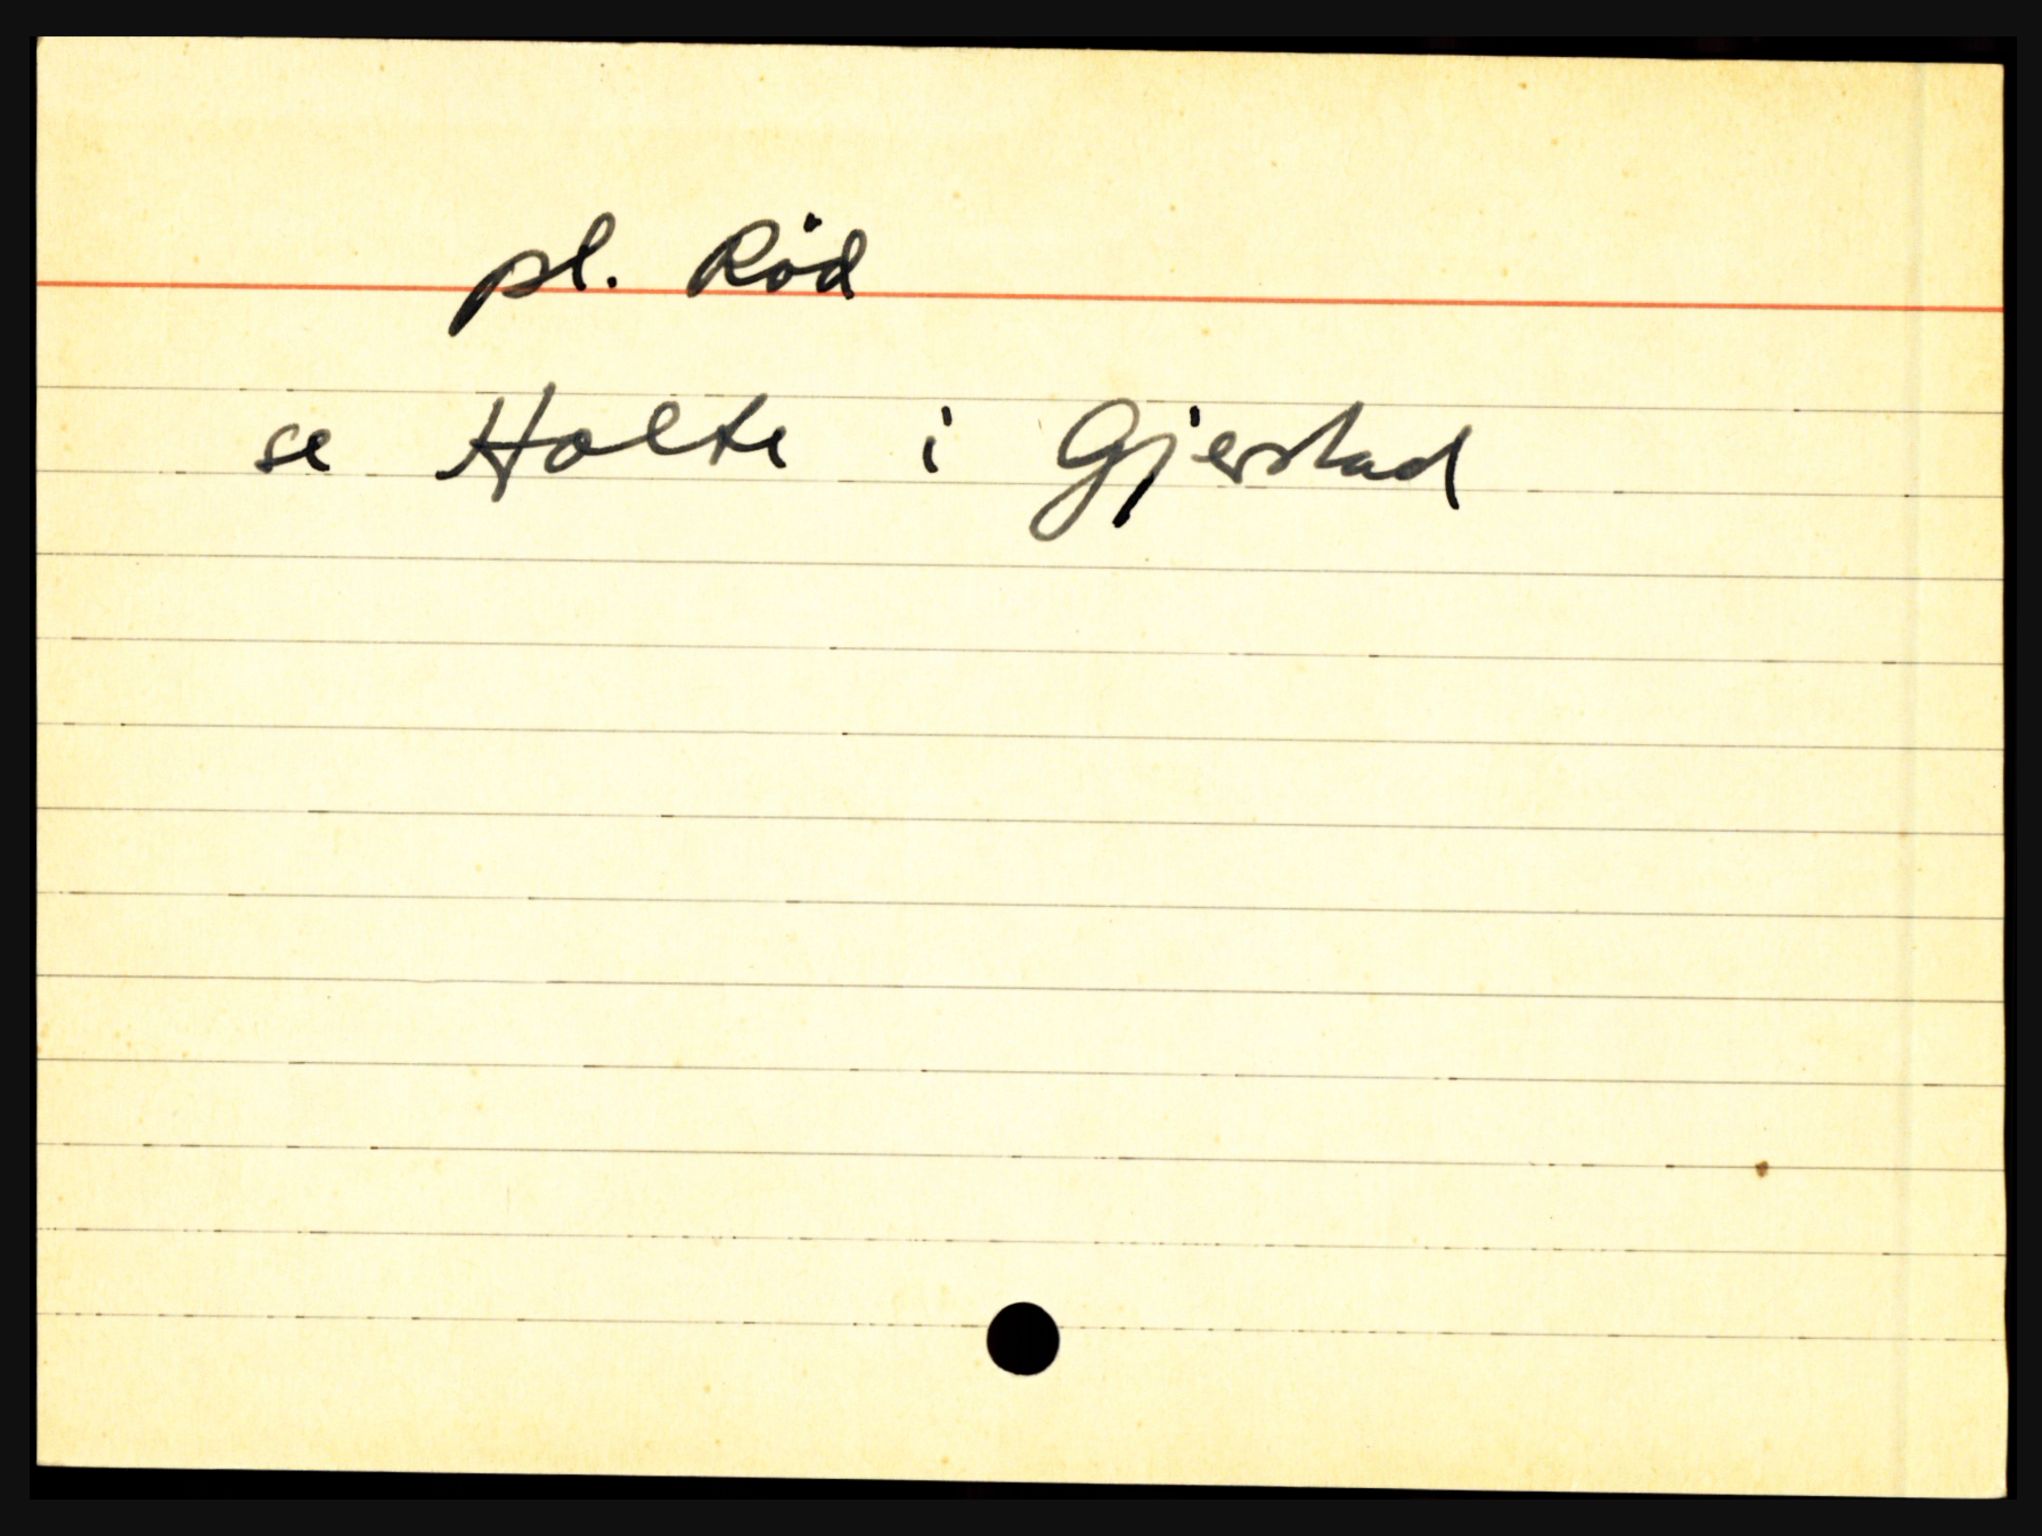 pl. Rød
se Holte i Gjerstad